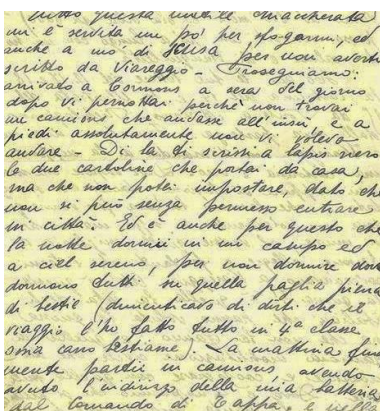 Tutto questa inutile chiaccherata
mi è servita un po' per sfogarmi, ed
anche a mo di scusa per non averti
scritto da Viareggio - Proseguiamo:
arrivato a Cormons a sera del giorno
dopo vi pernottai perchè non trovai
un camions che andasse all'insù e a
piedi assolutamente non vi volevo
andare - Di là ti scrissi a lapis nero
le due cartoline che portai da casa,
ma che non potei impostare, dato che
non si può senza permesso entrare
in città. Ed è anche per questo che
la notte dormii in un campo ed
a ciel sereno, per non dormire dove
dormono tutti su quella paglia piena
di bestie (dimenticavo di dirti che il
viaggio l'ho fatto tutto in 4ª classe
ossia carro bestiame). La mattina
mente partii in camions avendo
avuto l'indirizzo della mia batteria
dal Comando di Tappa e